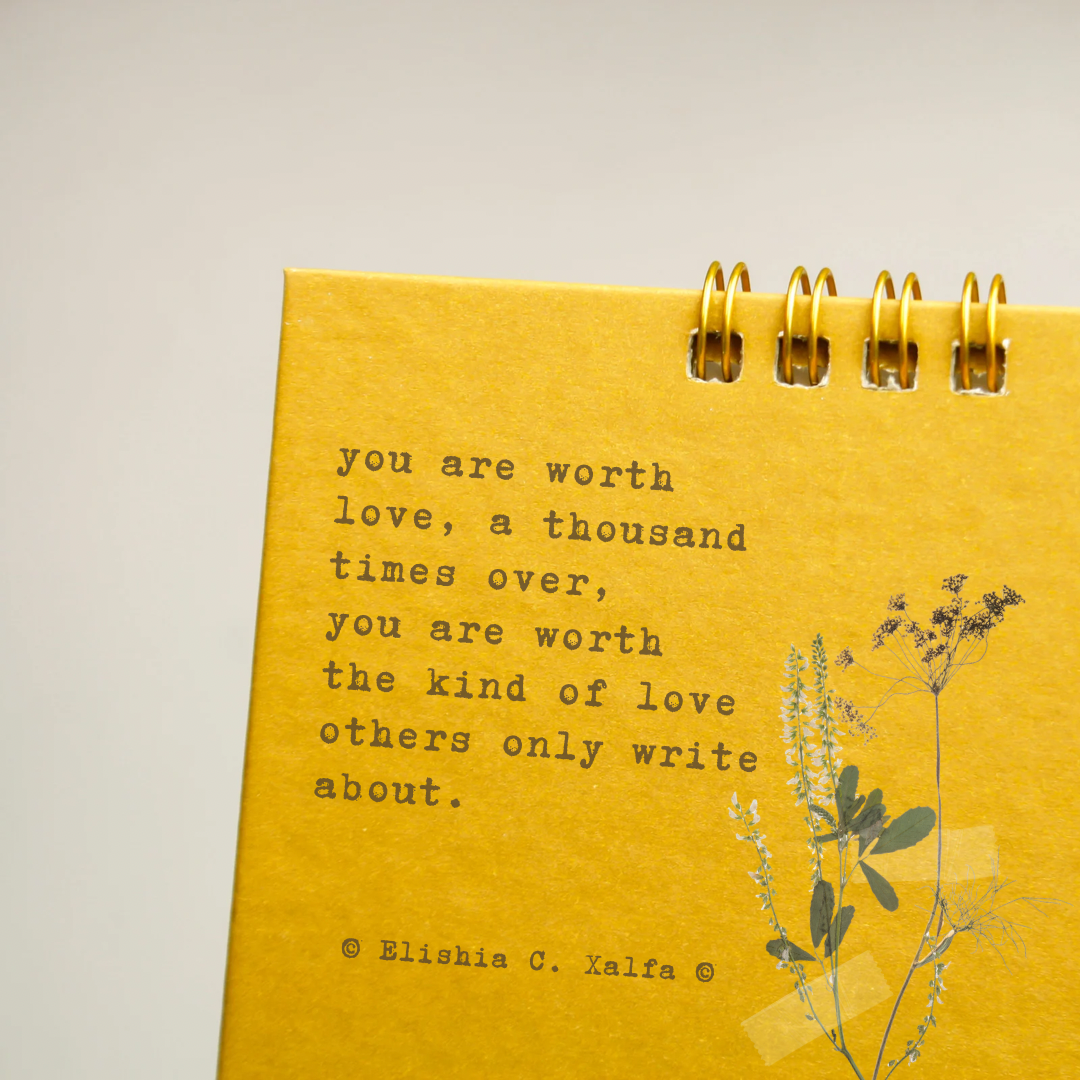 you are worth
love, a thousand
times over,
you are worth
the kind of love
others only write
about.
© Elishia C. Xalfa ©